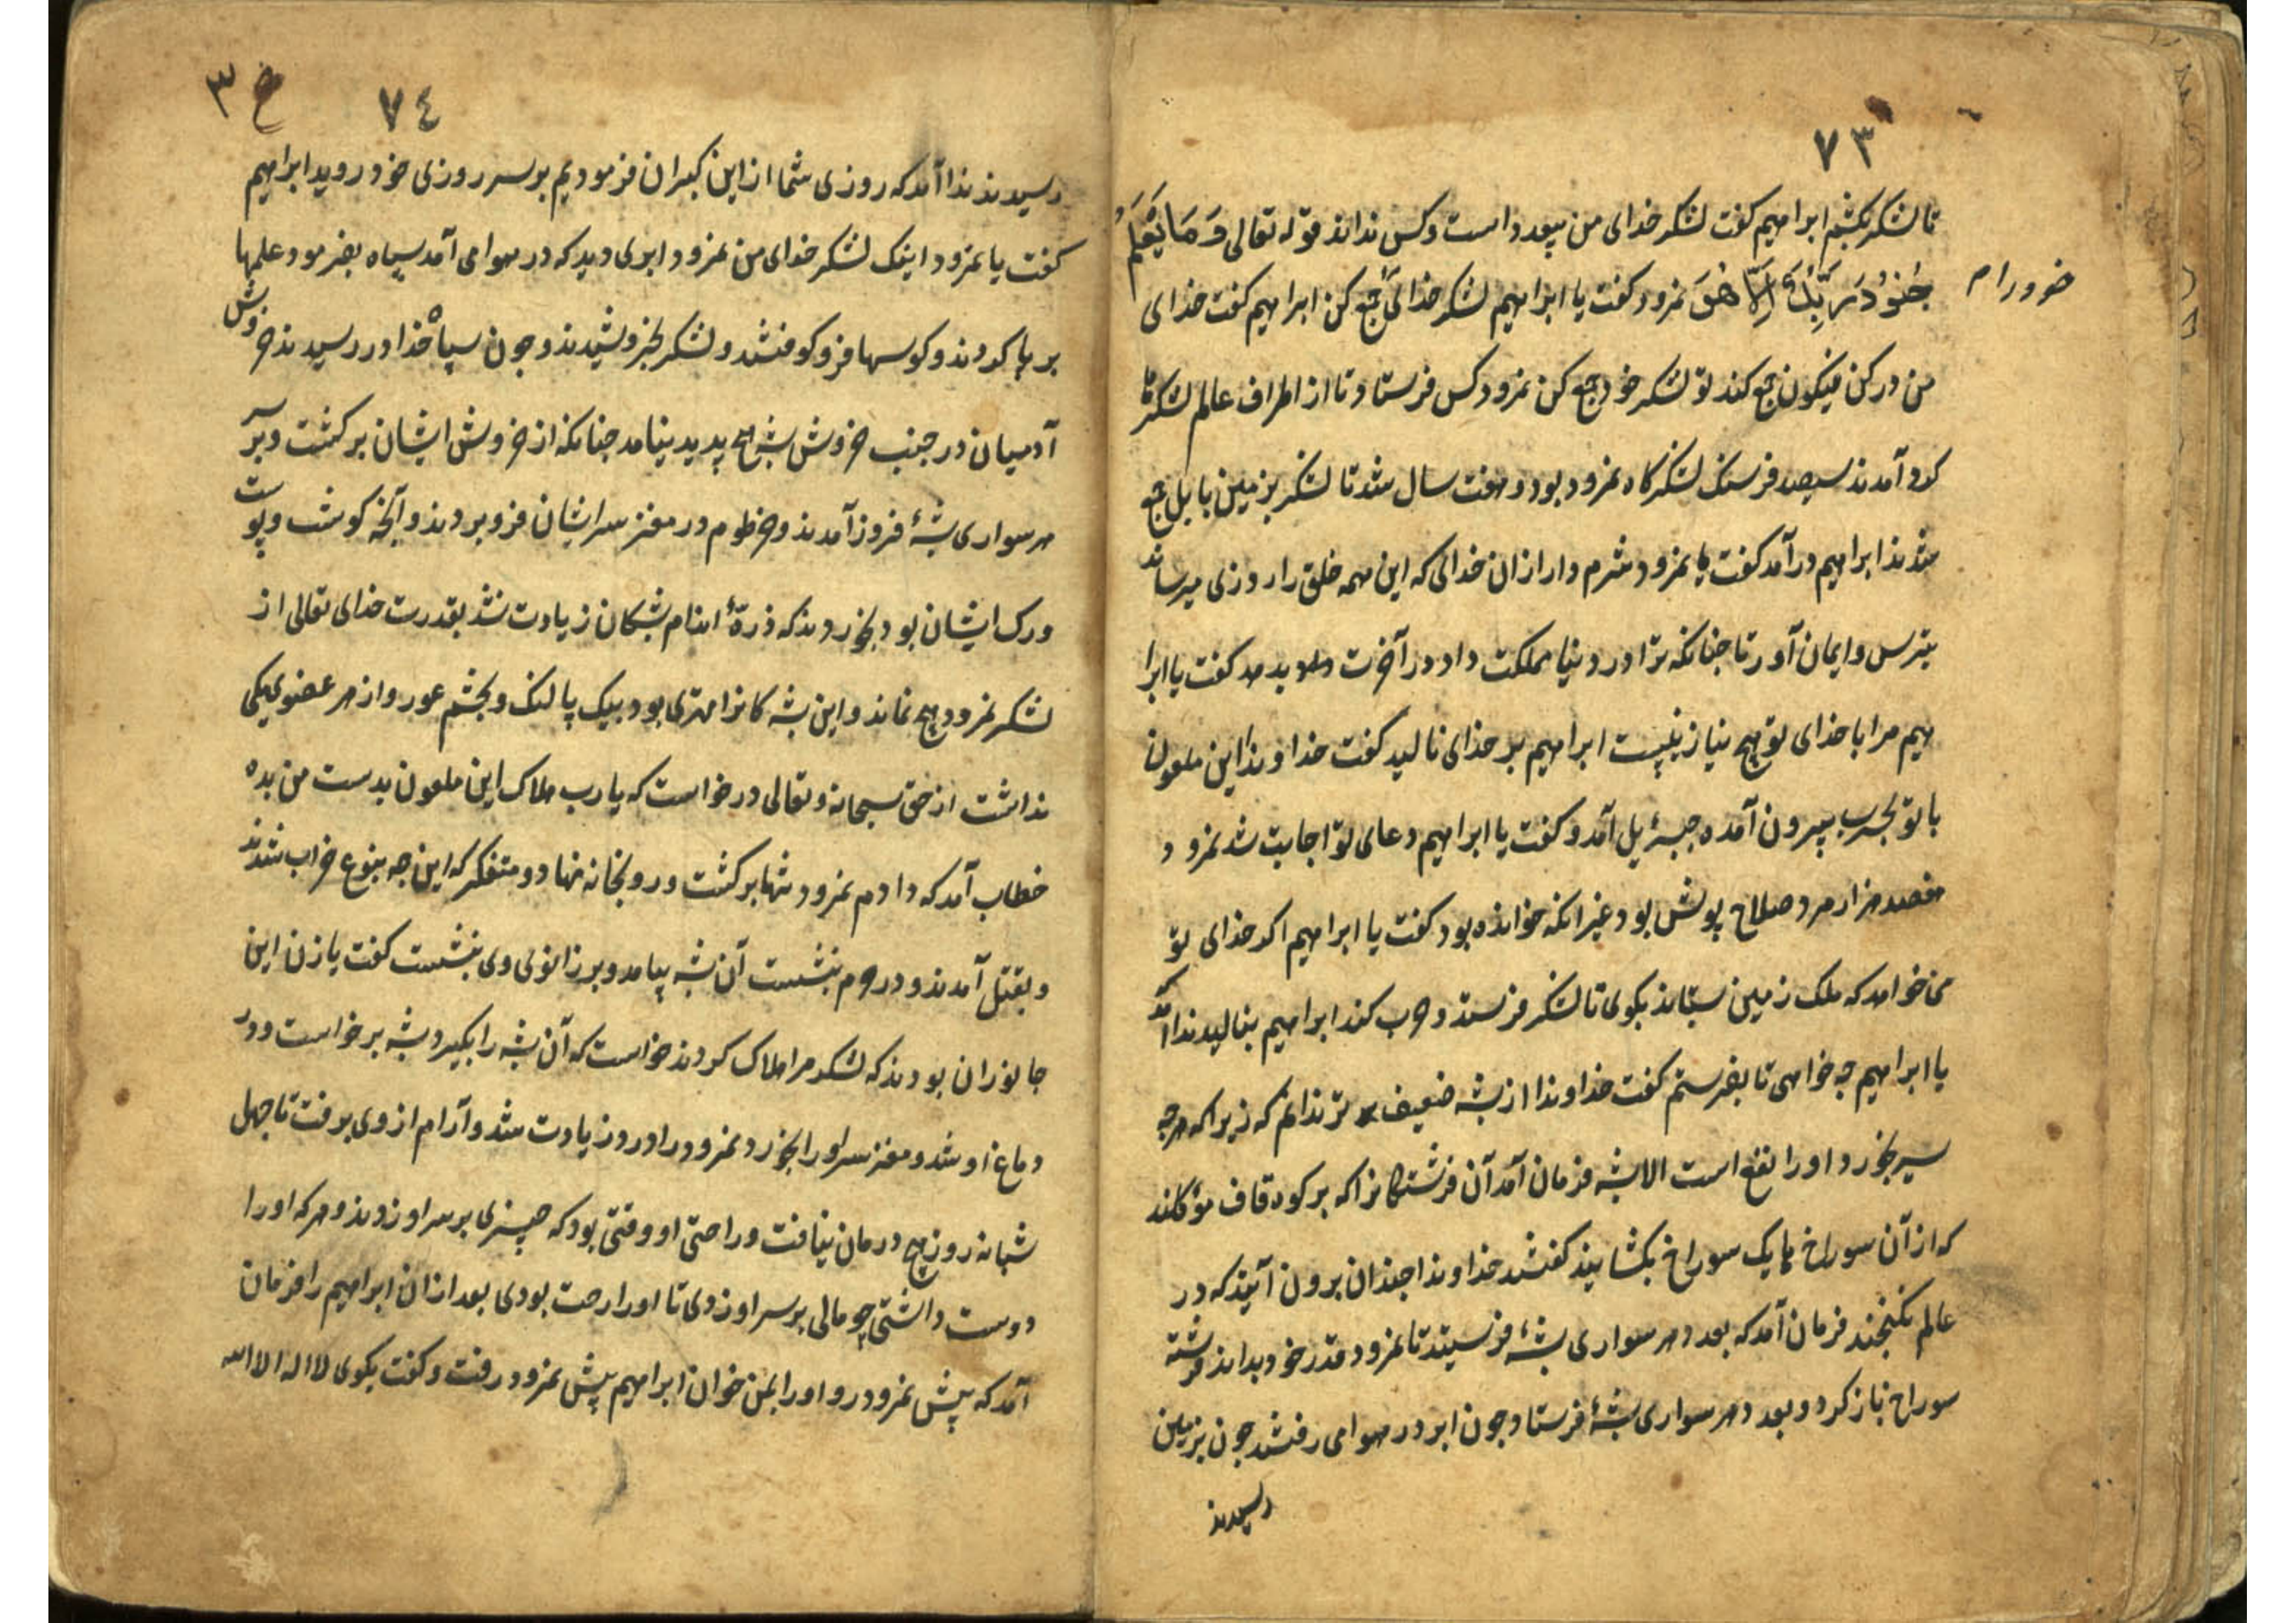 ٧٣
تا لشکر بکشم ابراهیم کفت لشکر خدای من بیعدد است وکس نداند قوله تعالی وَمَا یَعْلَمُ
جُنُوْدَ رَبِّكَ اِلَّا هُوَ نمرود کفت یا ابراهیم لشکر خدائی جمع کن ابراهیم کفت خدای
من در کن فیکون جمع کند تو لشکر خود جمع کن نمرود کس فرستاد تا از اطراف عالم لشکرها
کرد آمدند سیصد فرسنک لشکرکاه نمرود بود و هفت سال شد تا لشکر بزمین بابل جمع
شدند ابراهیم درآمد کفت یا نمرود شرم دار ازان خدائی که این همه خلق را روزی میرساند
بترس وایمان آور تا چنانکه ترا در دنیا مملکت داد در آخرت بدهد کفت یا ابرا
هیم مرا با خدای تو هیچ نیاز نیست ابراهیم بر خدای نالید کفت خداوندا این ملعون
با تو بحرب بیرون آمده جبرئیل آمد و کفت یا ابراهیم دعای تو اجابت شد نمرود
هفصد هزار مرد صلاح پوش بود غیرانکه خوانده بود کفت یا ابراهیم اکر خدای تو
می خواهد که ملک زمین بستاند بکوی تا لشکر فرستد و حرب کند ابراهیم بنالید ندا آمد
یا ابراهیم چه خواهی تا بفرستم کفت خداوندا از پشه ضعیف تر ندانم که زیراکه هرچه
سیر بخورد اورا نفع است الا پشه فرمان آمد آن فرشتکانرا که بر کوه قاف مؤکلند
که از آن سوراخ یک سوراخ بکشایند کفتند خداوندا چندان برون آیند که در
عالم نکنجند فرمان آمد که بعدد هر سواری پشهٔ فرستید تا نمرود قدر خود بداند فرشته
سوراخ باز کرد و بعدد هر سواری پشهٔ فرستاد چون ابر در هوا می رفتند چون بزمین
رسیدند
٧٤
خ ٣
رسیدند ندا آمد که روزی شما از این کبران فرمودیم بر سر روزی خود روید ابراهیم
کفت یا نمرود اینک لشکر خدای من نمرود ابری دید که در هوا می آمد سیاه بفرمود علمها
بر پا کردند و کوسها فرو کوفتند و لشکر بخروشیدند و چون سپاه خدا در رسیدند خروش
آدمیان در جنب خروش پشه هیچ پدید نیامد چنانکه از خروش ایشان بر کشت و بر سر
هر سواری پشهٔ فروز آمدند و خرطوم در مغز سر ایشان فرو بردند و آنچه کوشت و پوست
ورک ایشان بود بخوردند که ذرهٔ اندام پشکان زیادت نشد بقدرت خدای تعالی از
لشکر نمرود هیچ نماند و این پشه کانرا مهتری بود بیک پا لنک و بچشم عور و از هر عضوی یکی
نداشت از حق سبحانه وتعالی درخواست که یا رب هلاک این ملعون بدست من بده
خطاب آمد که دادم نمرود تنها بر کشت و رو بخانه نهاد و متفکر که این چه بنوع خراب شدند
و بقتل آمدند و در حرم بنشست آن پشه بیامد و بر زانوی وی بنشست کفت یا زن این
جانوران بودند که لشکر مرا هلاک کردند خواست که آن پشه را بکیرد پشه بر خواست و در
دماغ او شد و مغز سر اورا بخورد نمرود را درو زیادت شد و آرام از وی برفت تا چهل
شبانه روز هیچ درمان نیافت و راحتی او وقتی بود که چیزی بر سر او زدند و هر که اورا
دوست داشتی چو مالی بر سر او زدی تا اورا رحت بودی بعد ازان ابراهیم را فرمان
آمد که پیش نمرود رو اورا بمن خوان ابراهیم پیش نمرود رفت و کفت بکوی لا اله الا الله